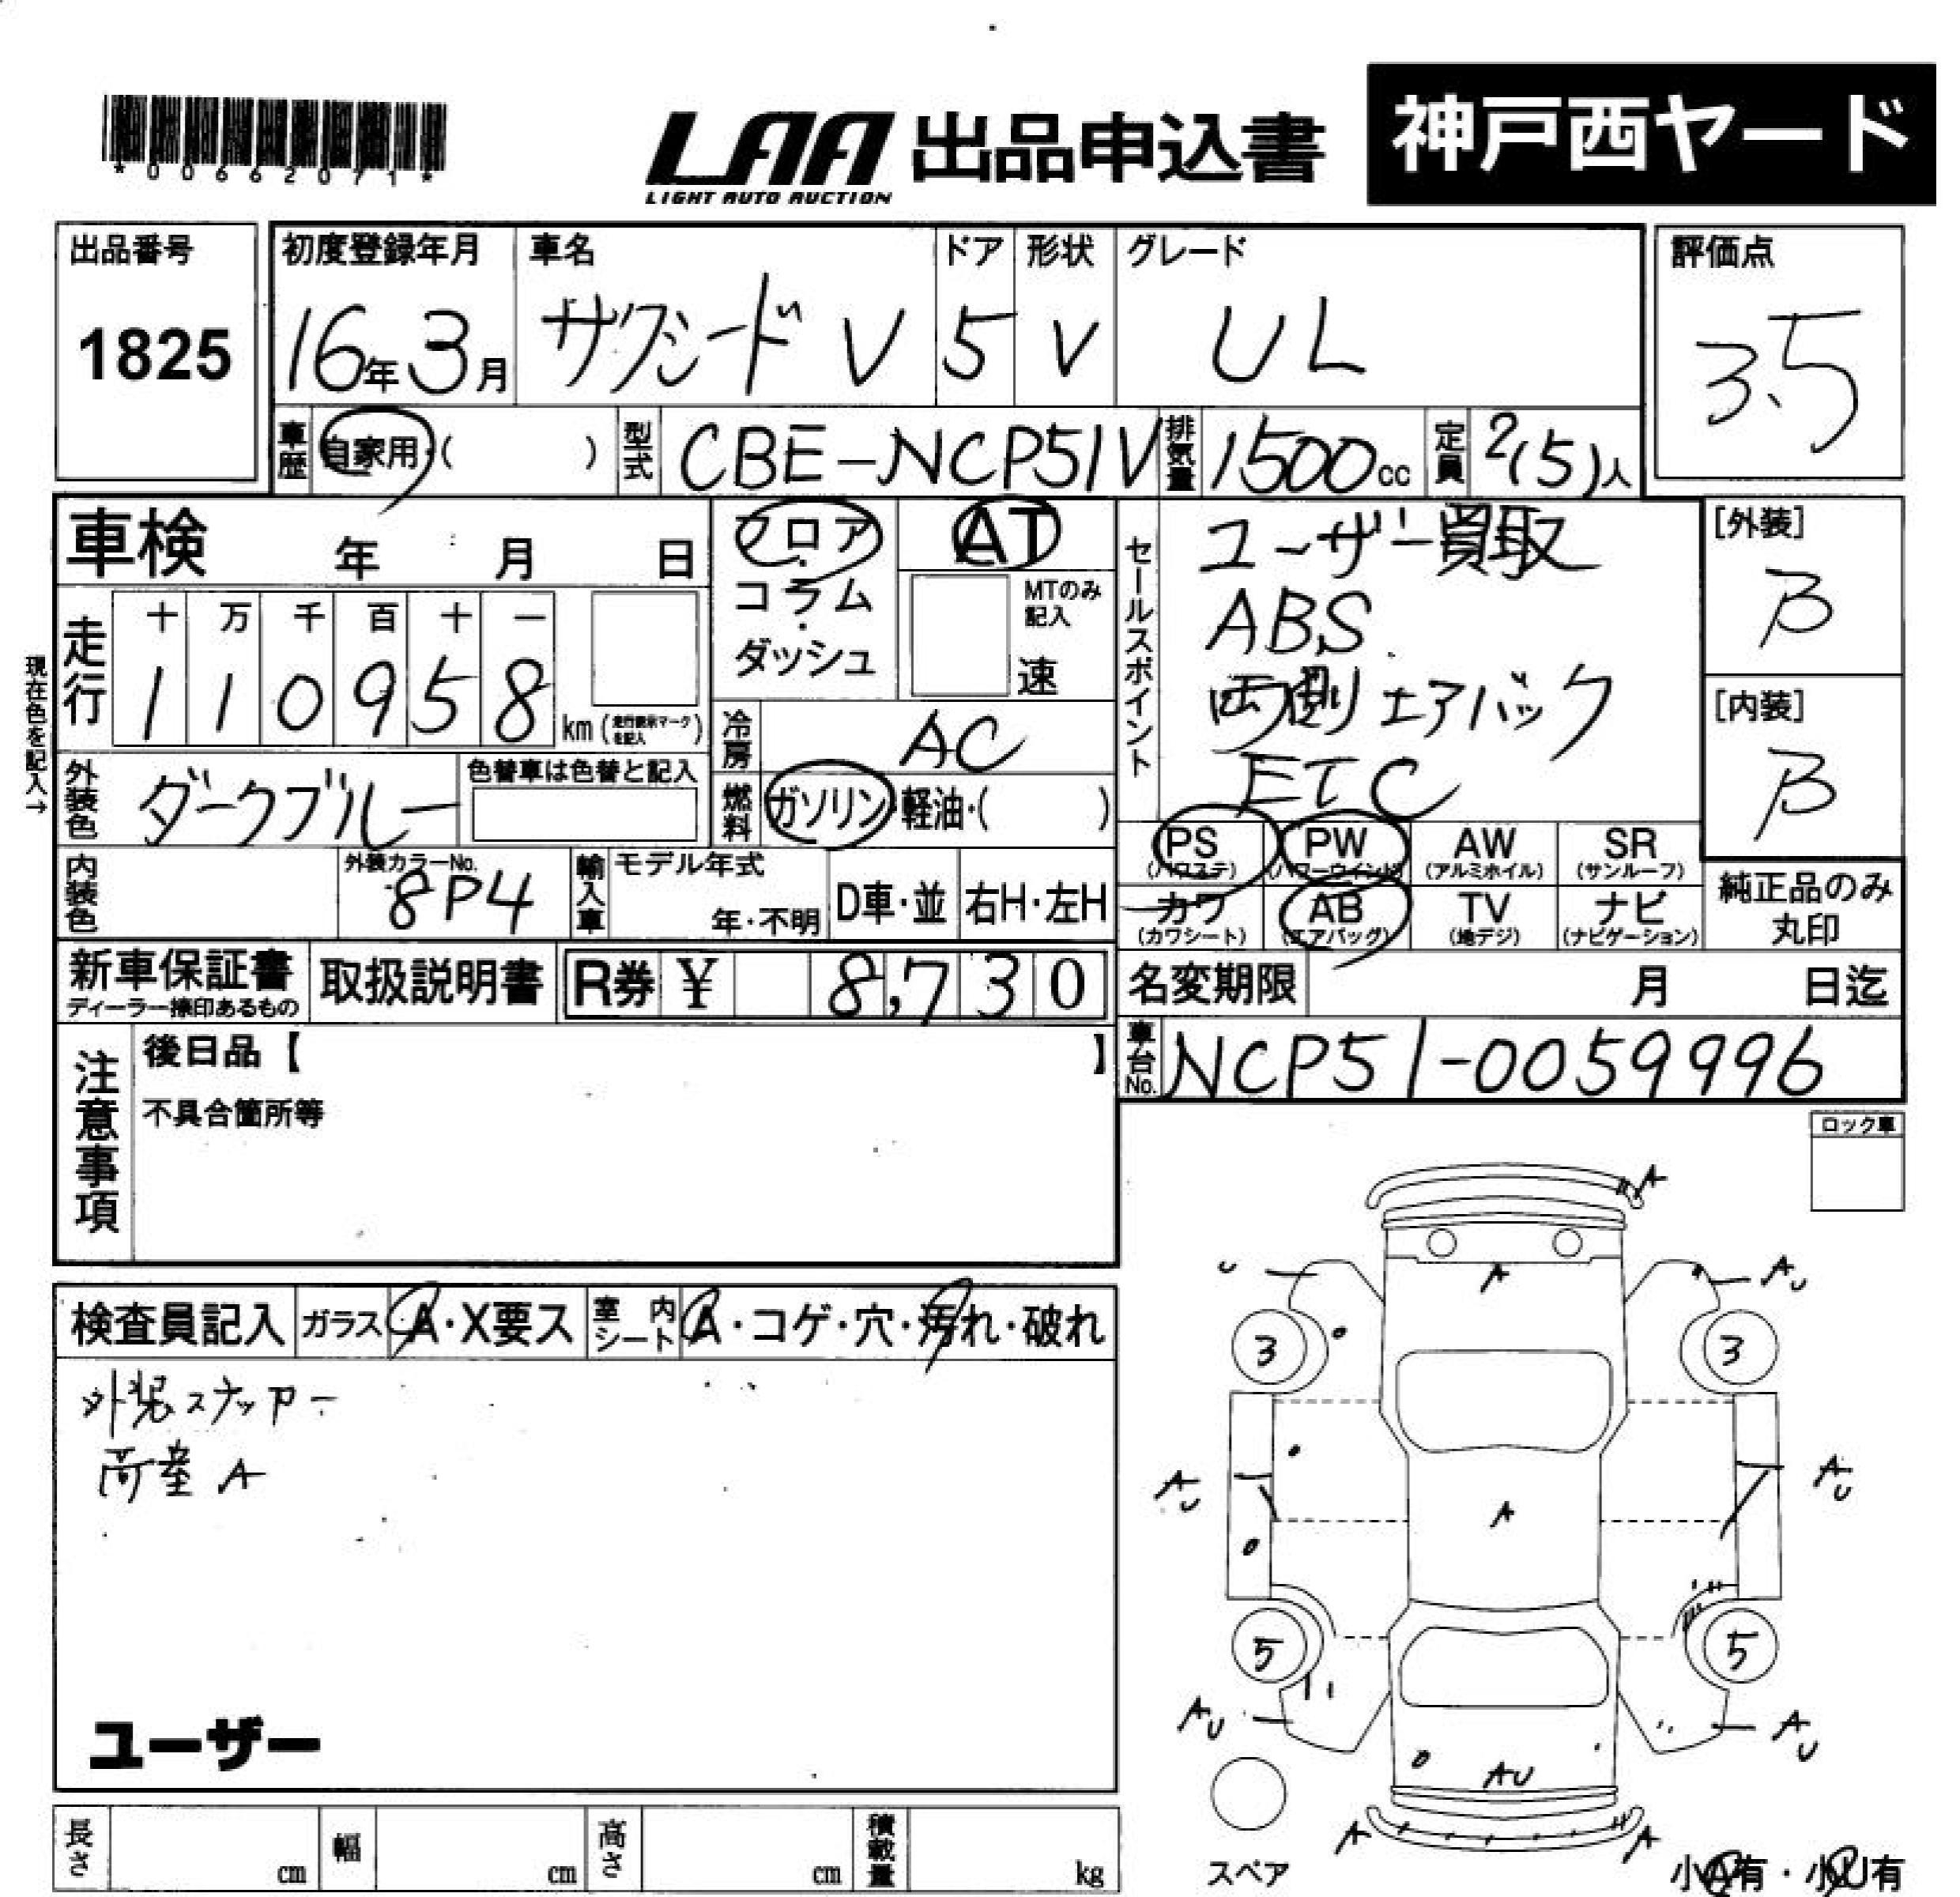 *00662071*
LAA 出品申込書 神戸西ヤード
LIGHT AUTO AUCTION
出品番号 初度登録年月 車名 ドア 形状 グレード 評価点
1825 16年3月 サクシードV 5 V UL 3.5
車歴 自家用・( ) 型式 CBE-NCP51V 排気量 1500cc 定員 2(5)人
車検 年 月 日 フロア・コラム・ダッシュ AT
MTのみ記入 速
現在色を記入→
走行 十 万 千 百 十 一
1 1 0 9 5 8 km (走行表示マークを記入)
冷房 AC
外装色 ダークブルー 色替車は色替と記入
燃料 ガソリン・軽油・( )
セールスポイント
ユーザー買取
ABS
両側エアバック
ETC
[外装]
B
[内装]
B
内装色 外装カラーNo. 8P4 輸入車 モデル年式 年・不明 D車・並 右H・左H
PS (パワステ) PW (パワーウインド) AW (アルミホイル) SR (サンルーフ)
カワ (カワシート) AB (エアバッグ) TV (地デジ) ナビ (ナビゲーション)
純正品のみ
丸印
新車保証書 取扱説明書 R券 ¥ 8,730
ディーラー捺印あるもの
名変期限 月 日迄
車台No. NCP51-0059996
注意事項
後日品【 】
不具合箇所等
ロック車
検査員記入 ガラス A・X要ス 室内シート A・コゲ・穴・汚れ・破れ
外装ステッカー
A
ユーザー
A
U A AU
3 3
AU AU
A
5 5
AU AU
AU
A A
スペア
小A有・小U有
長さ cm 幅 cm 高さ cm 積載量 kg